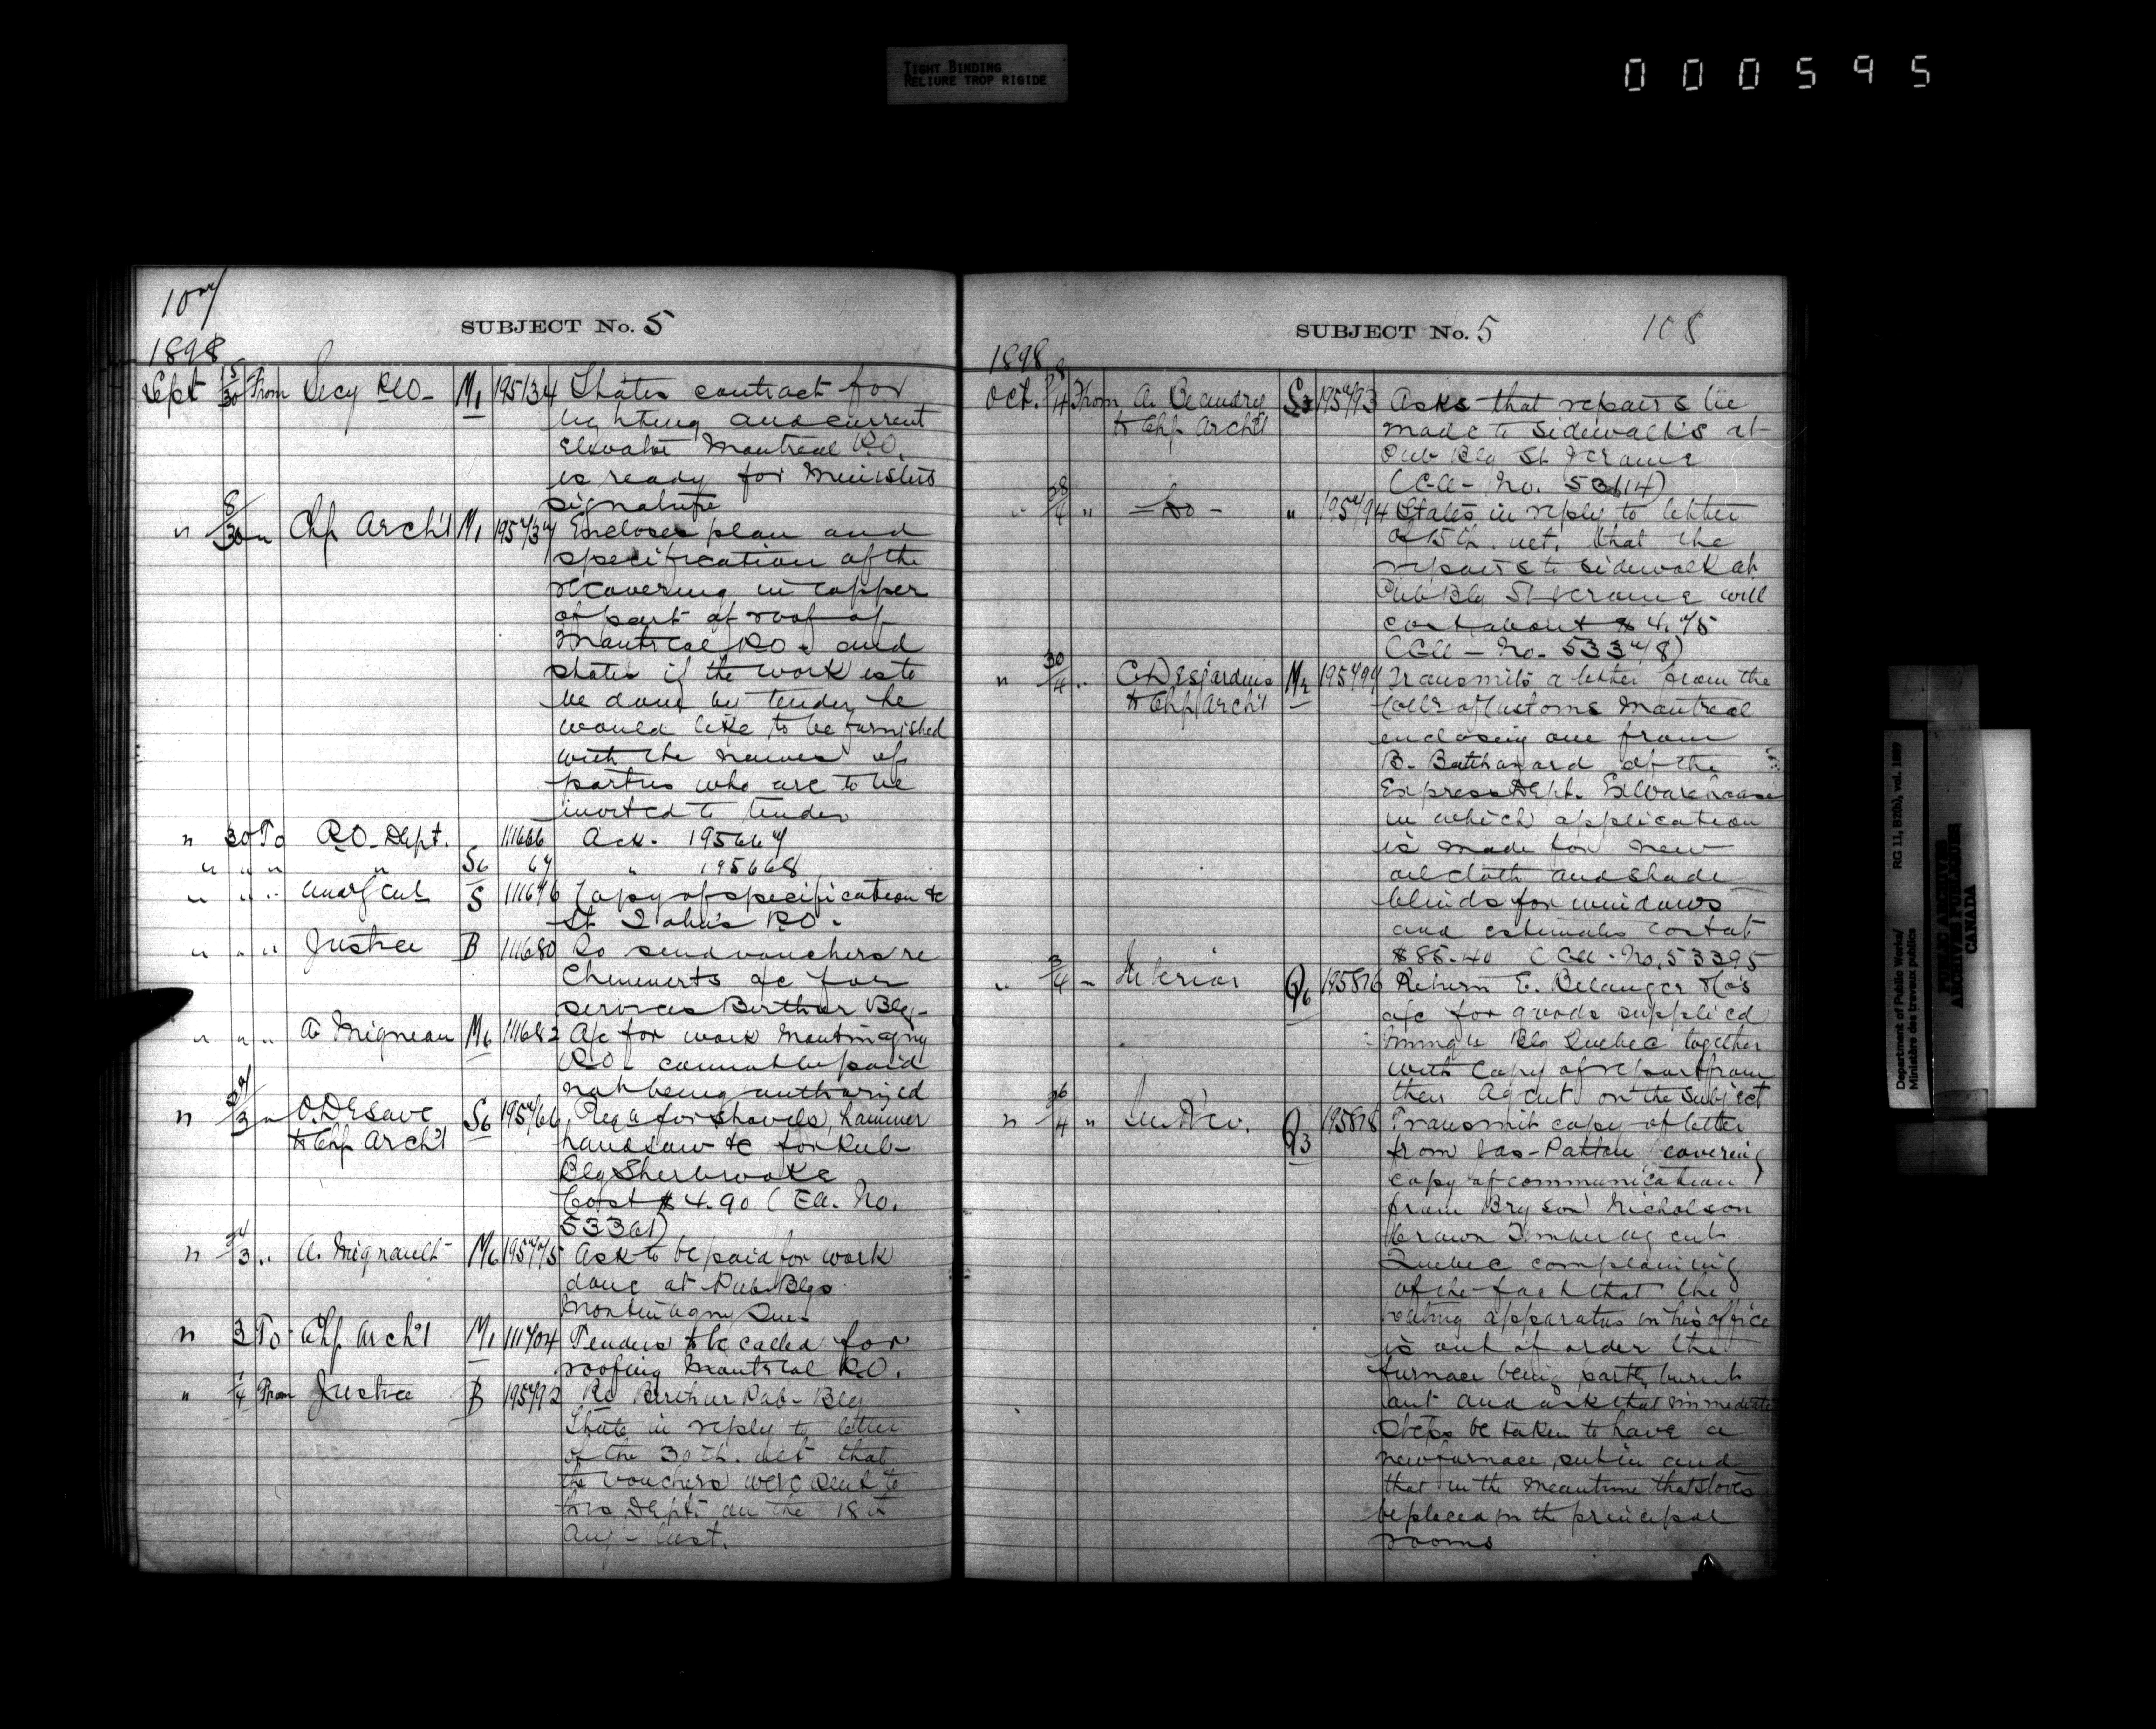 TIGHT BINDING
RELIURE TROP RIGIDE
000595
107
SUBJECT No. 5
1898
Sept 15/30 From Secy P.O. M1 195134 States contract for
lighting and current
Elevator Montreal P.O.
is ready for Ministers
signature
" 8/30 " Chf Arch't M1 195737 Encloses plan and
specification of the
recovering in copper
of part of roof of
Montreal P.O. and
states if the work is to
be done by tender he
would like to be furnished
with the names of
parties who are to be
invited to tender
" 30 To P.O. Dept. 111666 Ack. 195667
" " " " S6 67 " 195668
" " " S 111676 Copy of specification &c
St. John's P.O.
" " " Justice B 111680 To send vouchers re
Chenverts a/c for
services Berthier Blg-
" " " A Migneau M6 111682 A/c for work Montmagny
P.O. cannot be paid
not being authorized
" 27/3 " O. Desave S6 195766 Req a for shovels, hammer
to Chf Arch't handsaw &c for Pub-
Blg Sherbrooke
Cost $4.90 (Ea. No.
53361)
" /3 " A. Mignault M6 195775 Ask to be paid for work
done at Pub Blgs
Montmagny Que.
" 3 To Chf Arch't M1 111704 Tenders to be called for
roofing Montreal P.O.
" 1/4 From Justice B 195792 Re Berthier Pub- Blg
State in reply to letter
of the 30th. ult that
the vouchers were sent to
this Dept. on the 18th
Aug - last.
SUBJECT No. 5
108
1898
Oct. /4 From A. Beaudry S3 195793 Asks that repairs be
to Chf Arch't made to sidewalks at
Pub Blg St Jerome
(Ea - No. 53614)
" 28/4 " - Do - " 195794 States in reply to letter
of 15th. ult. that the
repairs to sidewalk at
Pub Blg St Jerome will
cost about $4.75
(Ea - No. 53378)
" 30/4 " C. Desjardins M2 195799 Transmits a letter from the
to Chf Arch't Collr of Customs Montreal
enclosing one from
B. Batthanard of the
Express Dept. Ex Warehouse
in which application
is made for new
oil cloth and shade
blinds for windows
and estimates cost at
$85.40 (Ea - No. 53395
" 3/4 " Interior Q6 195816 Return E. Belanger &Co's
a/c for goods supplied
Blg Quebec together
with copy of report from
their Agent on the subject
" 26/4 " Q3 195818 Transmit copy of letter
from Jas- Patton covering
copy of communication
from Bryson Nicholson
Crown Timber agent
Quebec complaining
of the fact that the
heating apparatus in his office
is out of order the
furnace being partly burnt
out and ask that immediate
steps be taken to have a
new furnace put in and
that in the meantime that stoves
be placed in the principal
rooms
Department of Public Works/ RG 11, B2(b), vol. 1897
Ministère des travaux publics
PUBLIC ARCHIVES
ARCHIVES PUBLIQUES
CANADA